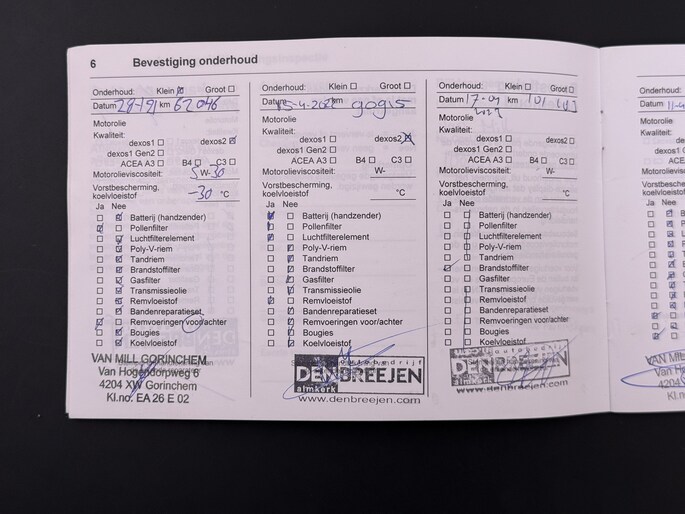 6 Bevestiging onderhoud
Onderhoud: Klein Groot
Datum 28-1-91 km 62046
Motorolie
Kwaliteit:
dexos1 dexos2
dexos1 Gen2
ACEA A3 B4 C3
Motorolieviscositeit: 5 W-30
Vorstbescherming,
koelvloeistof -30 °C
Ja Nee
Batterij (handzender)
Pollenfilter
Luchtfilterelement
Poly-V-riem
Tandriem
Brandstoffilter
Gasfilter
Transmissieolie
Remvloeistof
Bandenreparatieset
Remvoeringen voor/achter
Bougies
Koelvloeistof
VAN MILL GORINCHEM
Van Hogendorpweg 6
4204 XW Gorinchem
Kl.no. EA 26 E 02
Onderhoud: Klein Groot
Datum 15-4-2021 km
Motorolie
Kwaliteit:
dexos1 dexos2
dexos1 Gen2
ACEA A3 B4 C3
Motorolieviscositeit: W-
Vorstbescherming,
koelvloeistof °C
Ja Nee
Batterij (handzender)
Pollenfilter
Luchtfilterelement
Poly-V-riem
Tandriem
Brandstoffilter
Gasfilter
Transmissieolie
Remvloeistof
Bandenreparatieset
Remvoeringen voor/achter
Bougies
Koelvloeistof
autobedrijf
DEN BREEJEN
almkerk
www.denbreejen.com
Onderhoud: Klein Groot
Datum 17-01 km
Motorolie
Kwaliteit:
dexos1 dexos2
dexos1 Gen2
ACEA A3 B4 C3
Motorolieviscositeit: W-
Vorstbescherming,
koelvloeistof °C
Ja Nee
Batterij (handzender)
Pollenfilter
Luchtfilterelement
Poly-V-riem
Tandriem
Brandstoffilter
Gasfilter
Transmissieolie
Remvloeistof
Bandenreparatieset
Remvoeringen voor/achter
Bougies
Koelvloeistof
autobedrijf
DEN BREEJEN
almkerk
www.denbreejen.com
Onderhoud:
Datum
Motorolie
Kwaliteit:
Motorolievis
Vorstbesche
koelvloeistof
Ja Nee
VAN MILL
4204
Kl.no